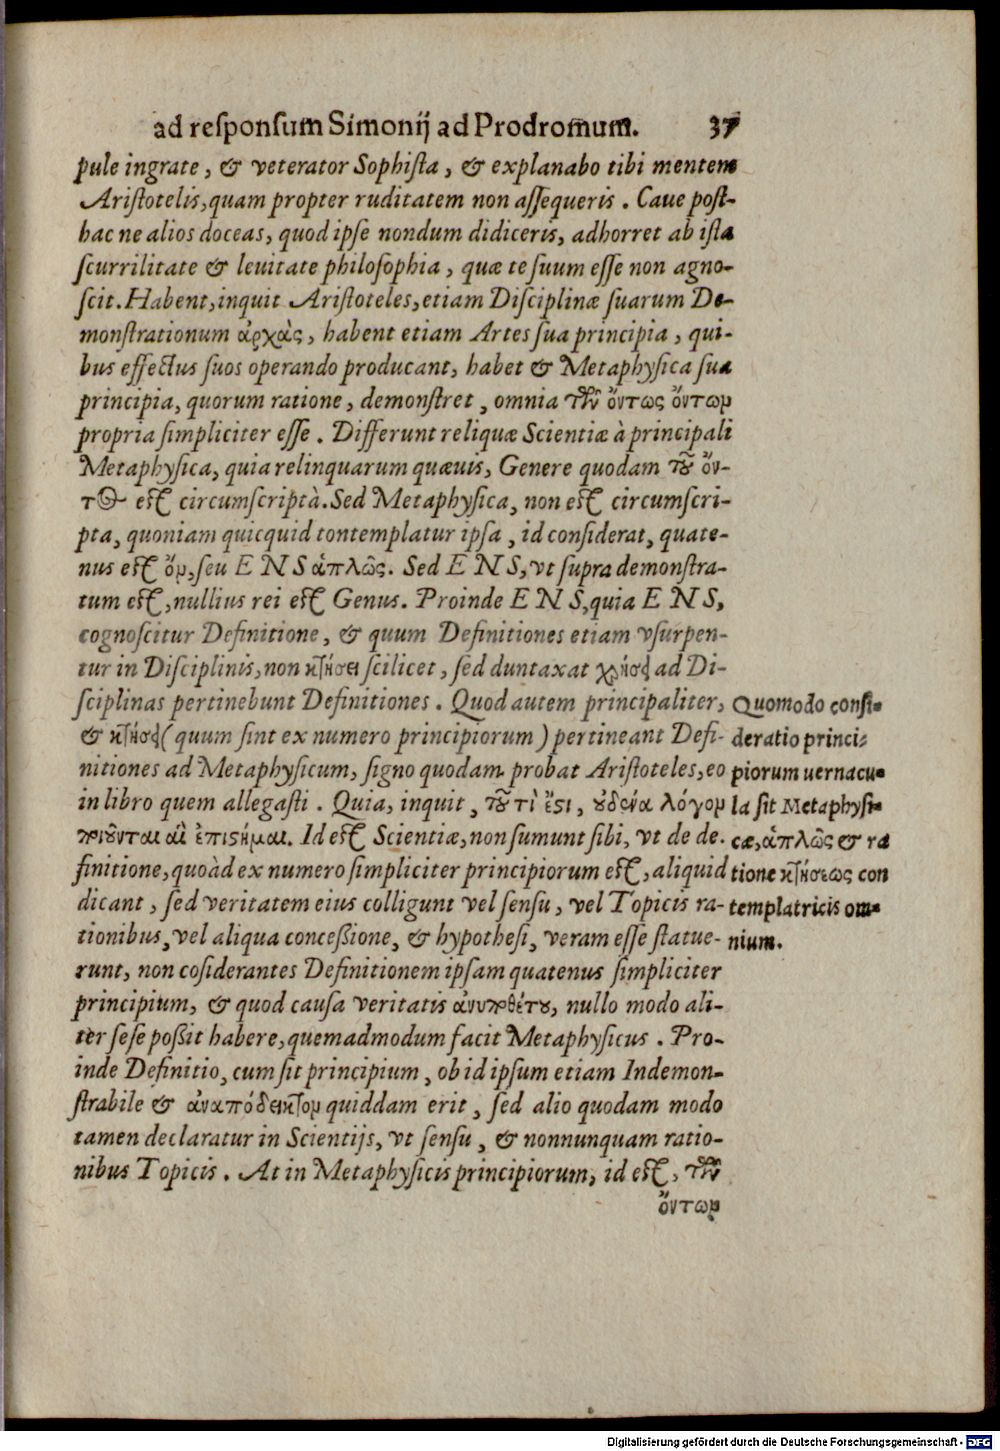 ad responsum Simonij ad Prodromum. 37
pule ingrate, & veterator Sophista, & explanabo tibi mentem
Aristotelis, quam propter ruditatem non assequeris. Caue post-
hac ne alios doceas, quod ipse nondum didiceris, adhorret ab ista
scurrilitate & leuitate philosophia, quæ te suum esse non agno-
scit. Habent, inquit Aristoteles, etiam Disciplinæ suarum De-
monstrationum ἀρχὰς, habent etiam Artes sua principia, qui-
bus effectus suos operando producant, habet & Metaphysica sua
principia, quorum ratione, demonstret, omnia τῶν ὄντως ὄντων
propria simpliciter esse. Differunt reliquæ Scientiæ à principali
Metaphysica, quia relinquarum quæuis, Genere quodam τοῦ ὄν-
τος est circumscriptà. Sed Metaphysica, non est circumscri-
pta, quoniam quicquid tontemplatur ipsa, id considerat, quate-
nus est ὄν, seu ENS ἁπλῶς. Sed ENS, vt supra demonstra-
tum est, nullius rei est Genus. Proinde ENS, quia ENS,
cognoscitur Definitione, & quum Definitiones etiam vsurpen-
tur in Disciplinis, non κτήσει scilicet, sed duntaxat χρήσει ad Di-
sciplinas pertinebunt Definitiones. Quod autem principaliter,
& κτήσει (quum sint ex numero principiorum) pertineant Defi-
nitiones ad Metaphysicum, signo quodam probat Aristoteles, eo
in libro quem allegasti. Quia, inquit, τοῦ τὶ ἔστι, οὐδένα λόγον
ποιοῦνται αἱ ἐπιστήμαι. Id est Scientiæ, non sumunt sibi, vt de de-
finitione, quoàd ex numero simpliciter principiorum est, aliquid
dicant, sed veritatem eius colligunt vel sensu, vel Topicis ra-
tionibus, vel aliqua concessione, & hypothesi, veram esse statue-
runt, non cosiderantes Definitionem ipsam quatenus simpliciter
principium, & quod causa veritatis ἀνυποθέτου, nullo modo ali-
ter sese possit habere, quemadmodum facit Metaphysicus. Pro-
inde Definitio, cum sit principium, ob id ipsum etiam Indemon-
strabile & ἀναπόδεικτον quiddam erit, sed alio quodam modo
tamen declaratur in Scientijs, vt sensu, & nonnunquam ratio-
nibus Topicis. At in Metaphysicis principiorum, id est, τῶν
ὄντων
Quomodo consi-
deratio princi-
piorum uernacu-
la sit Metaphysi-
cæ, ἁπλῶς & ra
tione κτήσεως con
templatricis om-
nium.
Digitalisierung gefördert durch die Deutsche Forschungsgemeinschaft - DFG